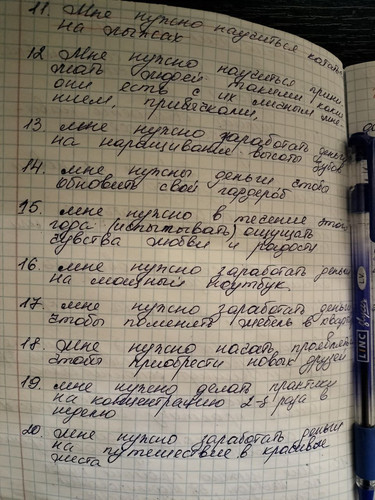 11. Мне нужно научиться катат
на лыжах
12 Мне нужно научиться прини
мать людей такими, каки
они есть с их личным мне-
нием, привычками,
13 мне нужно заработать деньг
на наращивание высоты зубов
14. мне нужны деньги чтоб
обновить свой гардероб
15. мне нужно в течение этого
года (испытывать) ощущать
чувства любви и радости
16. мне нужно заработать деньги
на мощный ноутбук.
17. мне нужно заработать деньг
чтобы поменять мебель в кварт
18. Мне нужно начать проявлять
чтобы приобрести новых друзей
19. мне нужно делать практику
на концентрацию 2-3 раза в
неделю
20. Мне нужно заработать деньги
на путешествие в красивые
места
LINC